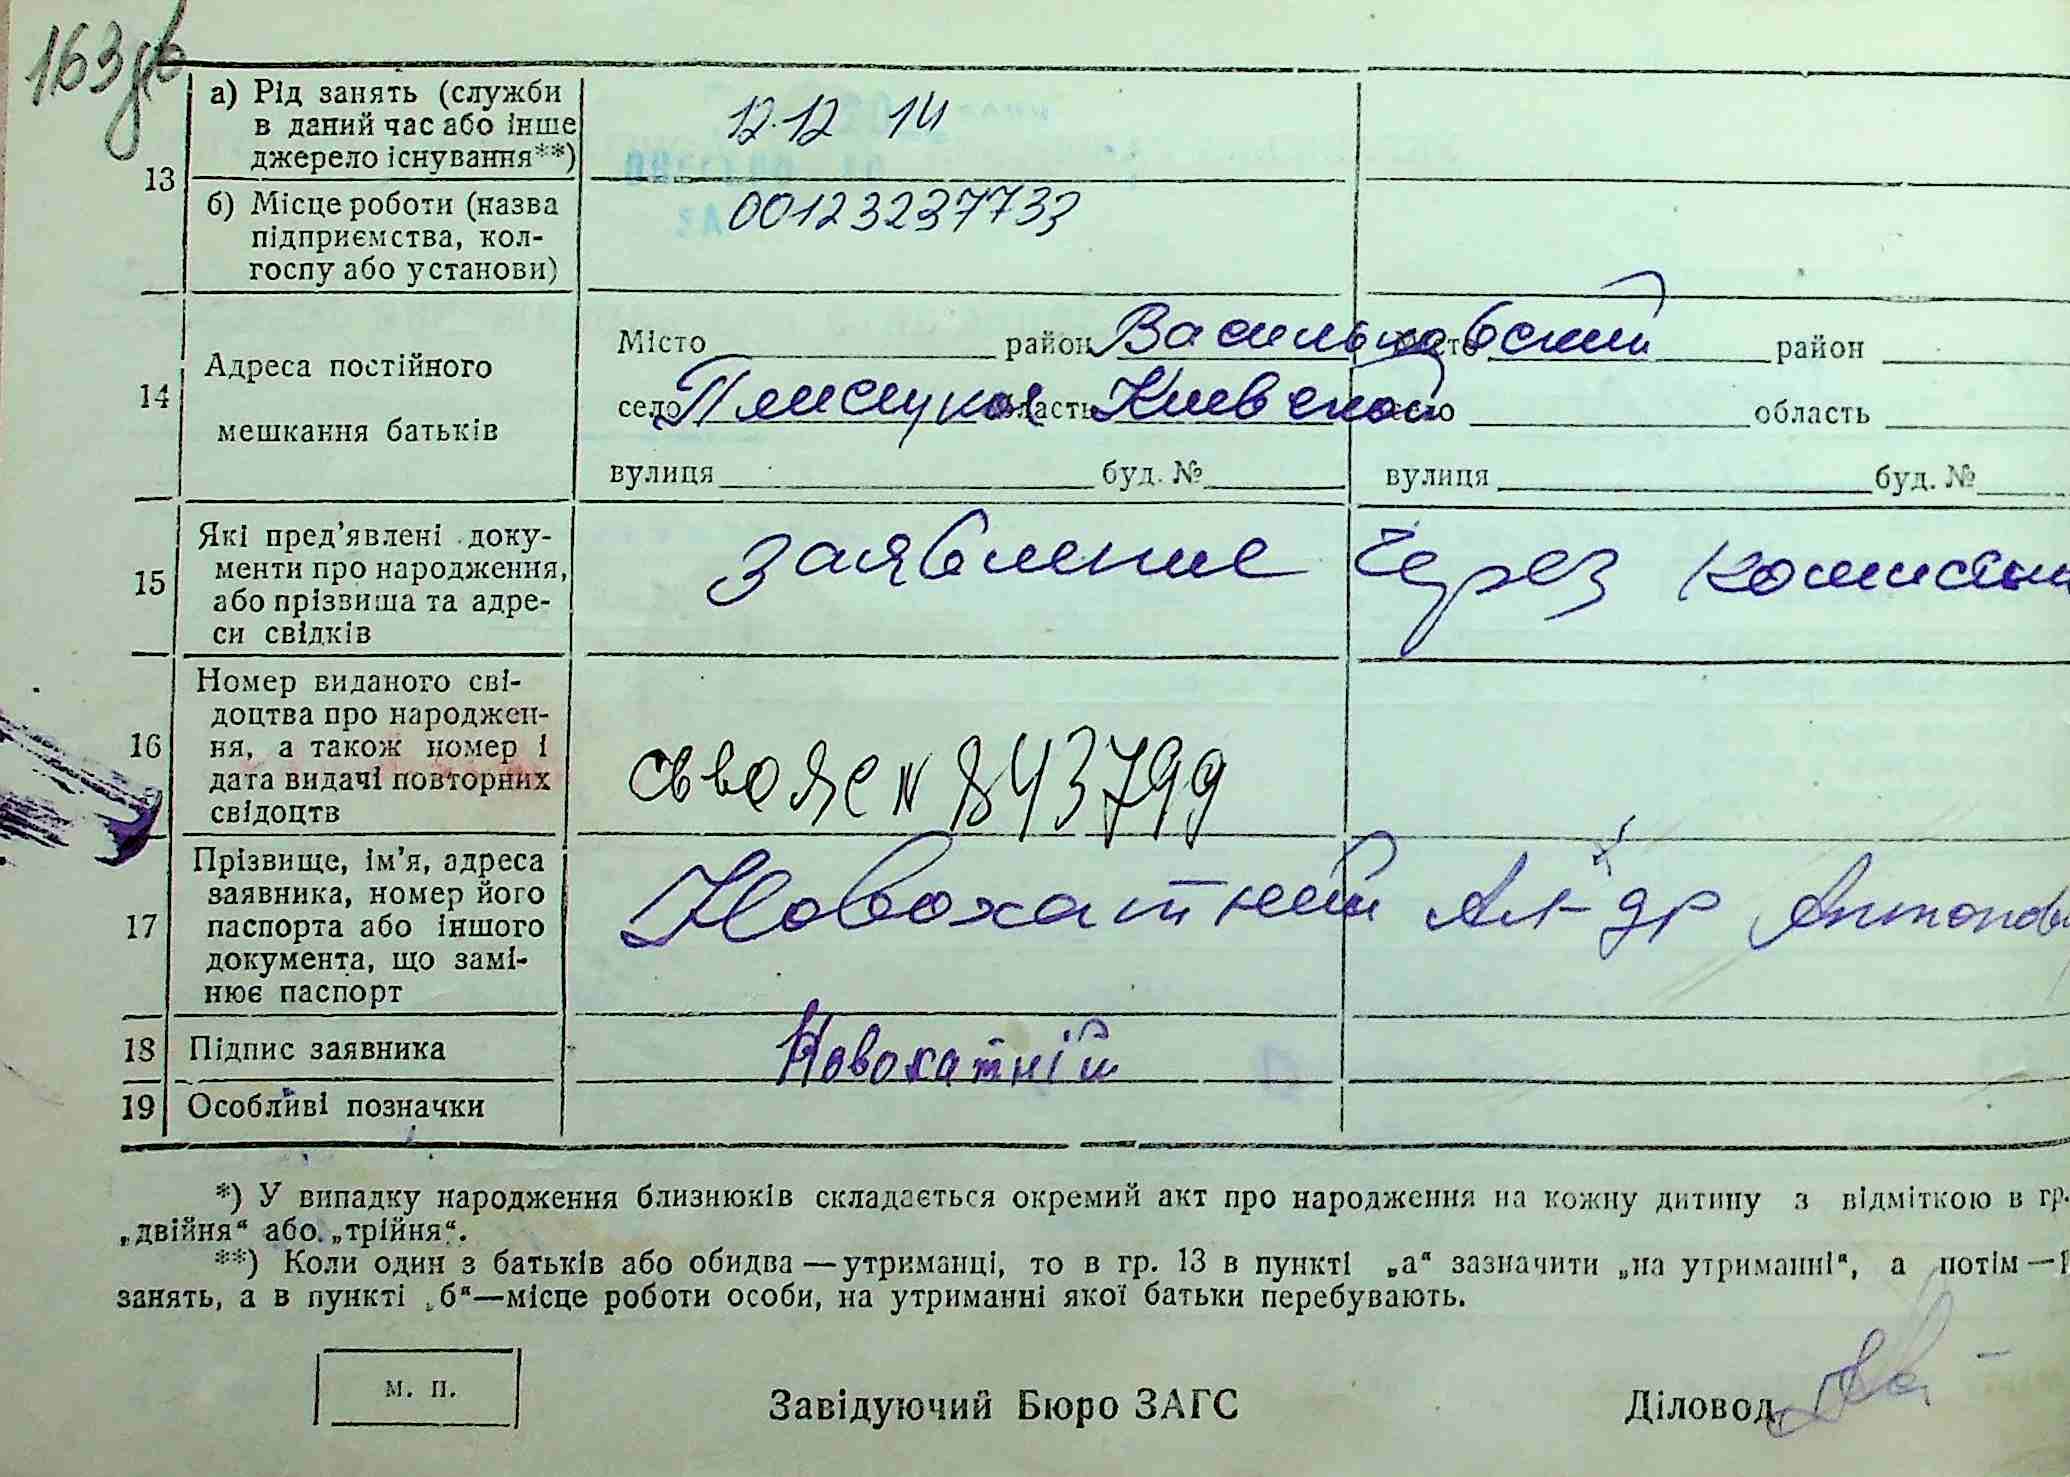 163
а) Рід занять (служби
в даний час або інше
джерело існування**)
12.12 14
13
б) Місце роботи (назва
підприємства, кол-
госпу або установи)
00123237733
14
Адреса постійного
мешкання батьків
Місто район Васильковский місто район
село область Киевской село область
вулиця буд. № вулиця буд. №
15
Які пред’явлені доку-
менти про народження,
або прізвища та адре-
си свідків
заявление через
16
Номер виданого сві-
доцтва про народжен-
ня, а також номер і
дата видачі повторних
свідоцтв
N 843799
17
Прізвище, ім’я, адреса
заявника, номер його
паспорта або іншого
документа, що замі-
нює паспорт
Новохатний Ал-др
18 Підпис заявника Новохатній
19 Особливі позначки
*) У випадку народження близнюків складається окремий акт про народження на кожну дитину з відміткою в гр.
„двійня“ або „трійня“.
**) Коли один з батьків або обидва — утриманці, то в гр. 13 в пункті „а“ зазначити „на утриманні“, а потім —
занять, а в пункті „б“—місце роботи особи, на утриманні якої батьки перебувають.
м. п.
Завідуючий Бюро ЗАГС Діловод